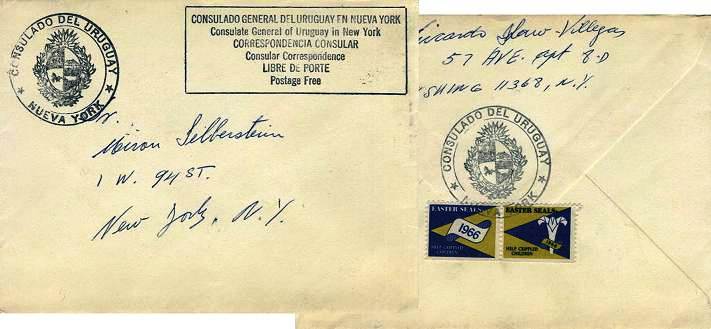 CONSULADO DEL URUGUAY
★ NUEVA YORK ★
CONSULADO GENERAL DEL URUGUAY EN NUEVA YORK
Consulate General of Uruguay in New York
CORRESPONDENCIA CONSULAR
Consular Correspondence
LIBRE DE PORTE
Postage Free
Sr.
Miron Silberstein
1 W. 94 ST.
New York, N.Y.
Villegas
57 AVE. Apt 8-D
SHING 11368, N.Y.
CONSULADO DEL URUGUAY
★ NUEVA YORK ★
EASTER SEALS
1966
HELP CRIPPLED
CHILDREN
EASTER SEALS
1966
HELP CRIPPLED
CHILDREN